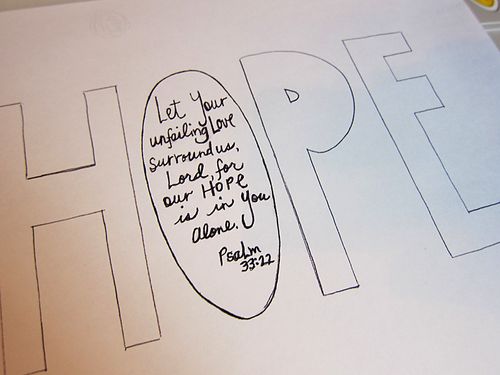 HOPE
Let Your
unfailing Love
surround us,
Lord, for
our HOPE
is in You
alone.
Psalm
33:22